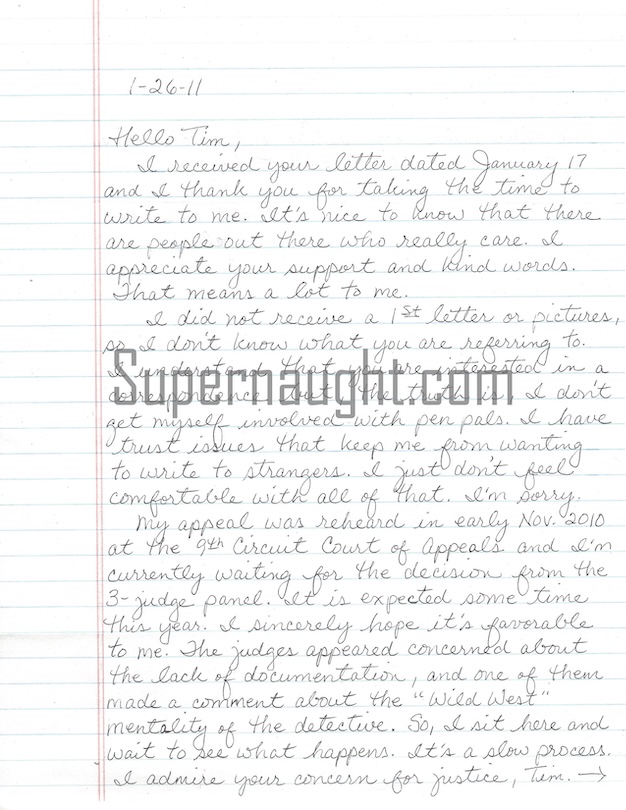 1-26-11
Hello Tim,
I received your letter dated January 17
and I thank you for taking the time to
write to me. It's nice to know that there
are people out there who really care. I
appreciate your support and kind words.
That means a lot to me.
I did not receive a 1st letter or pictures,
so I don't know what you are referring to.
I understand that you are interested in a
correspondence, but the truth is, I don't
Supernaught.com
get myself involved with pen pals. I have
trust issues that keep me from wanting
to write to strangers. I just don't feel
comfortable with all of that. I'm sorry.
My appeal was reheard in early Nov. 2010
at the 9th Circuit Court of Appeals and I'm
currently waiting for the decision from the
3-judge panel. It is expected some time
this year. I sincerely hope it's favorable
to me. The judges appeared concerned about
the lack of documentation, and one of them
made a comment about the "Wild West"
mentality of the detective. So, I sit here and
wait to see what happens. It's a slow process.
I admire your concern for justice, Tim. →